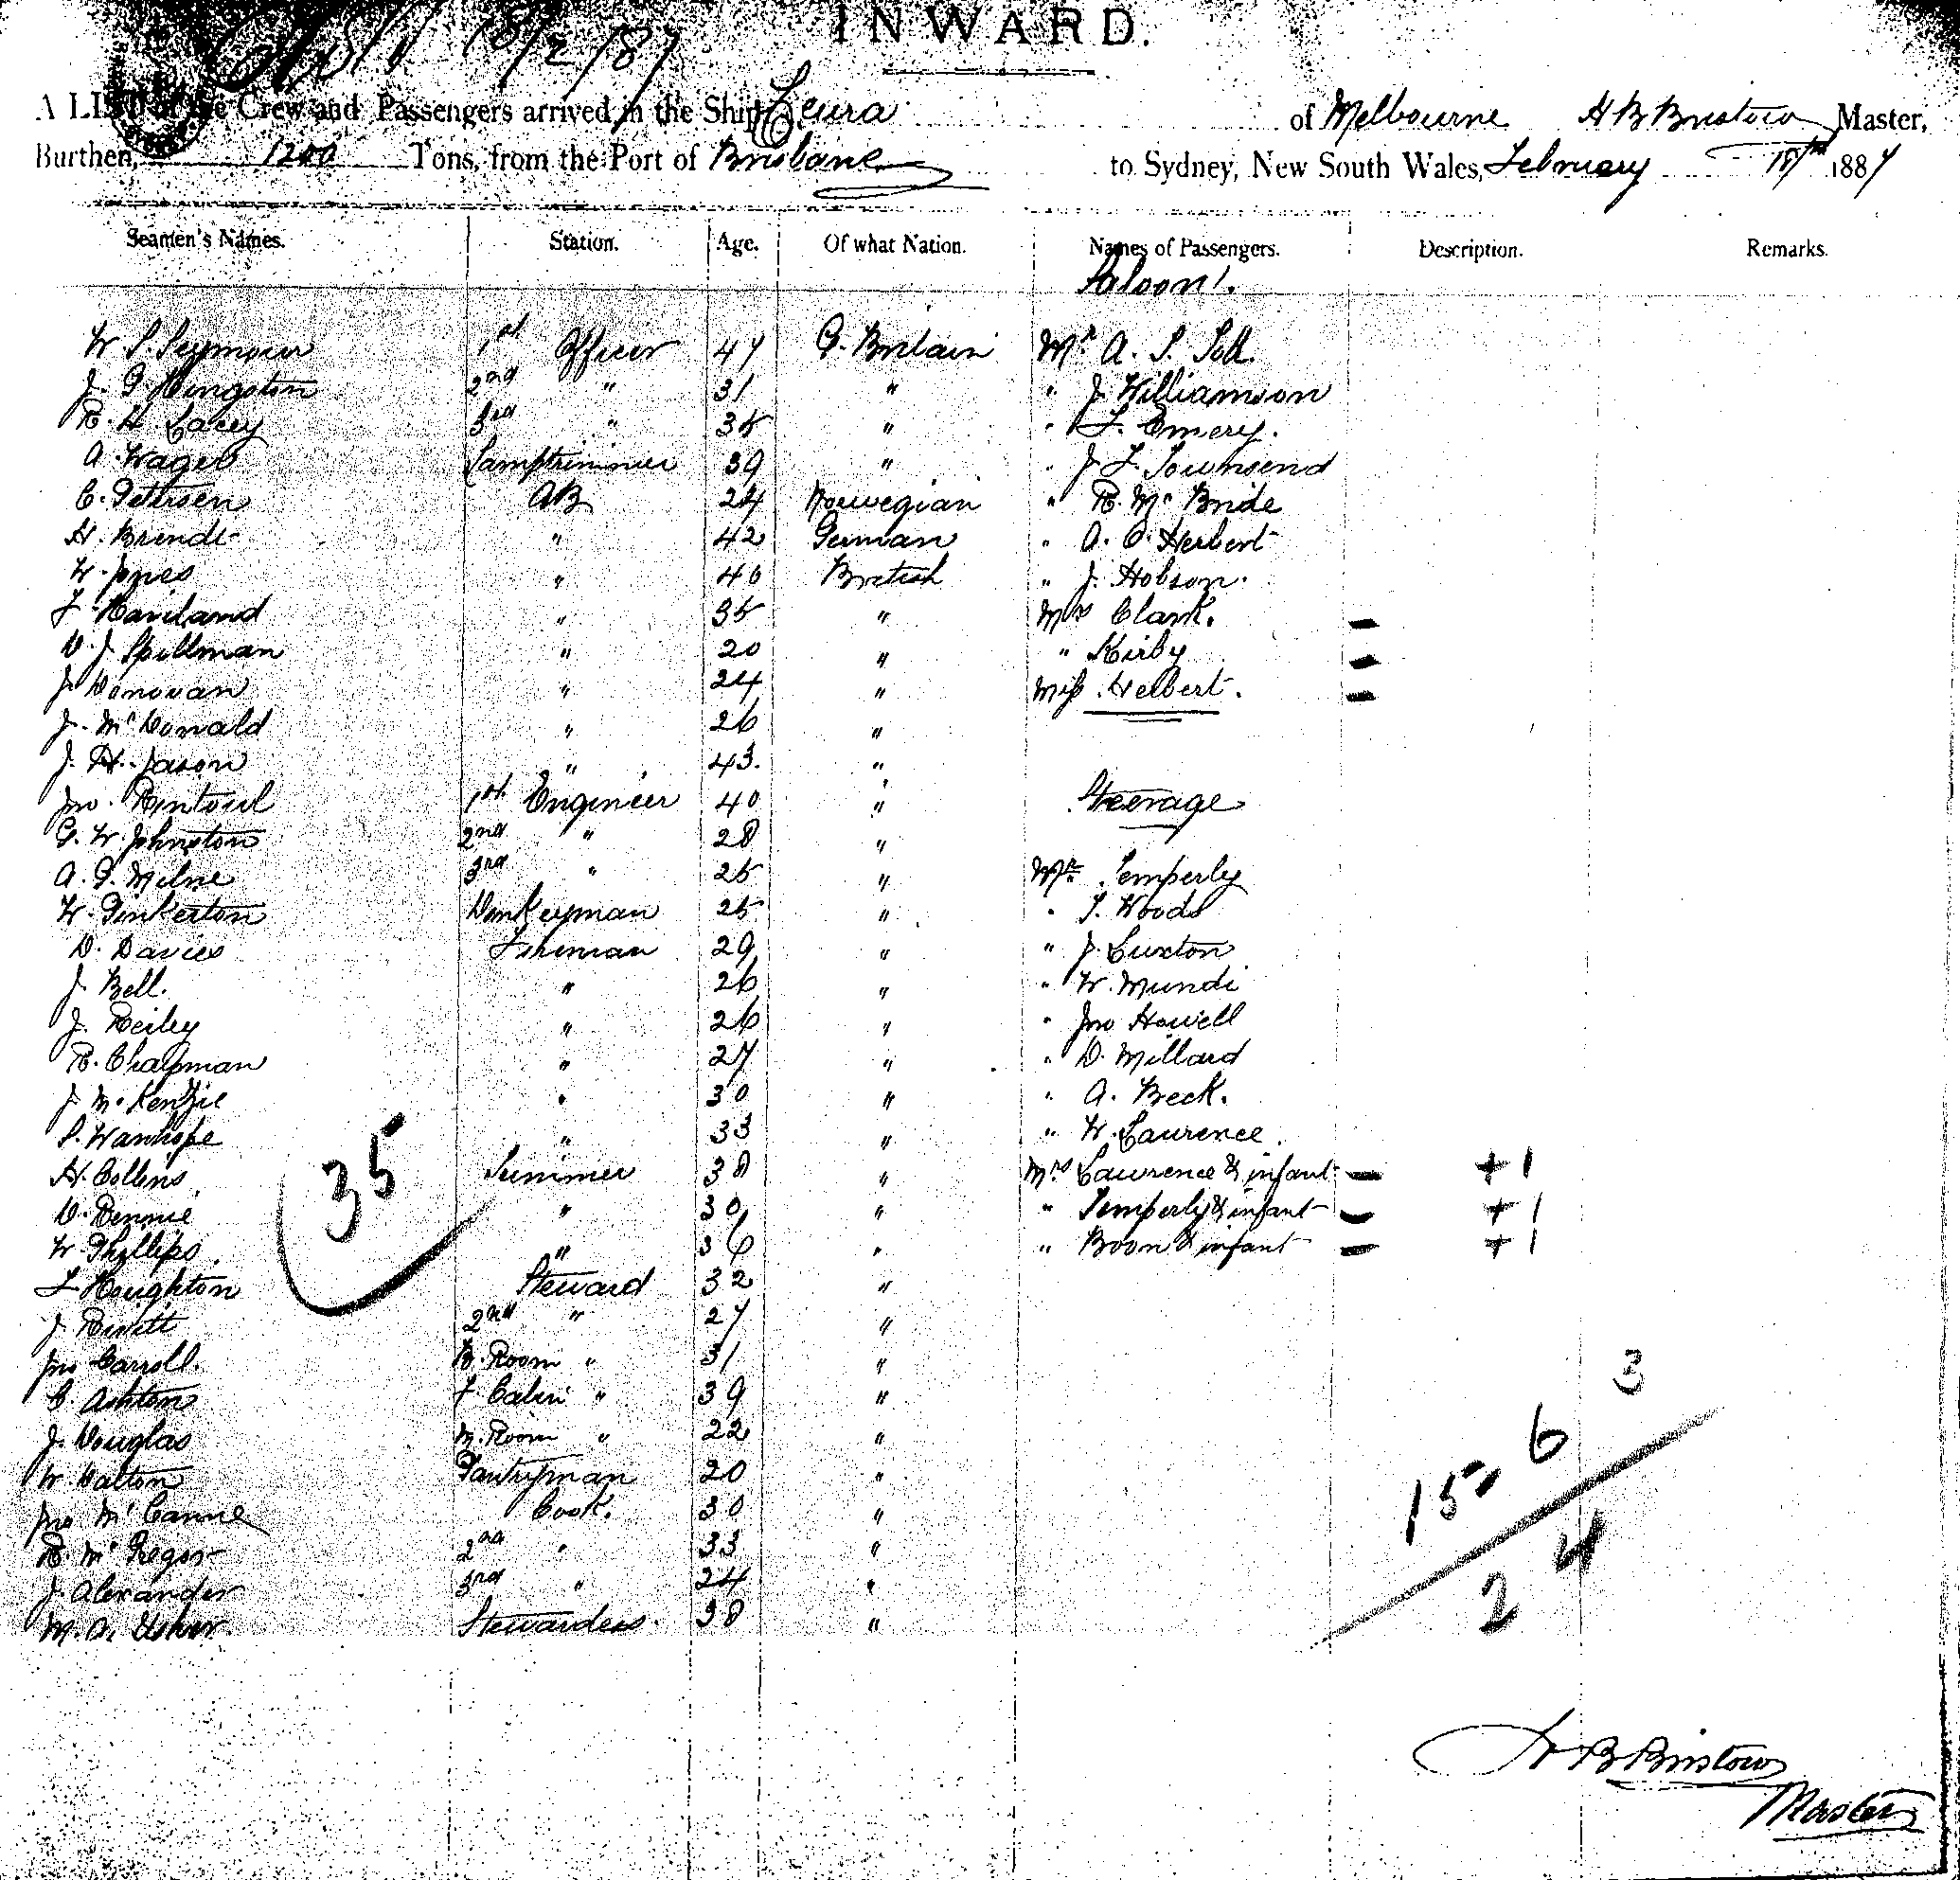 18/2/87
INWARD.
A LIST of the Crew and Passengers arrived in the Ship Leura of Melbourne H B Bristow Master,
Burthen, 1200 Tons, from the Port of Brisbane to Sydney, New South Wales, February 18th 1887
Seamen's Names. Station. Age. Of what Nation. Names of Passengers. Description. Remarks.
Saloon.
W. S. Seymour 1st Officer 47 G. Britain Mr A. S.
J. P. Hingston 2nd " 31 " " J Williamson
R. H. Lacey 3rd " 35 " " F. Emery.
A. Wagel Lamptrimmer 39 " " J F. Townsend
C. Petersen AB 24 Norwegian " R. Mc Bride
H. Brendt " 42 German " A. O. Herbert
W. Jones " 40 British " J. Hobson.
F. Haviland " 35 " Mrs Clark. -
D. J. Spillman " 20 " " Kirby -
J Donovan " 24 " Miss Herbert. -
J. Mc Donald " 26 "
J. H. Jason " 43. "
Jno. Rintoul 1st Engineer 40 " Steerage
G. W. Johnston 2nd " 28 "
A. P. Milne 3rd " 25 " Mr Temperly
W. Pinkerton Donkeyman 25 " " T. Woods
D. Davies Fireman 29 " " J. Luxton
J. Bell. " 26 " " W. Mundi
J. Reiley " 26 " " Jno Howell
R. Chapman " 27 " " D. Millard
J Mc Kenzie " 30 " " A. Beck.
S. Wanhope " 33 " " W. Laurence
H. Collins Trimmer 38 " Mrs Lawrence & infant - +1
D. Rennie " 30 " " Temperly & infant - +1
W. Phillips " 36 " " Boon & infant - +1
35
F Houghton Steward 32 "
J. Rivett 2nd " 27 "
Jno Carroll. B. Room " 31 "
C. Ashton F Cabin " 39 "
J. Douglas M. Room " 22 "
W. Dalton Pantryman 20 "
Jno Mc Canne Cook. 30 "
R. Mc Gregor 2nd " 33 "
J. Alexander 3rd " 24 "
M. A. Usher. Stewardess. 38 "
3
15 - 6
24
H B Bristow
Master